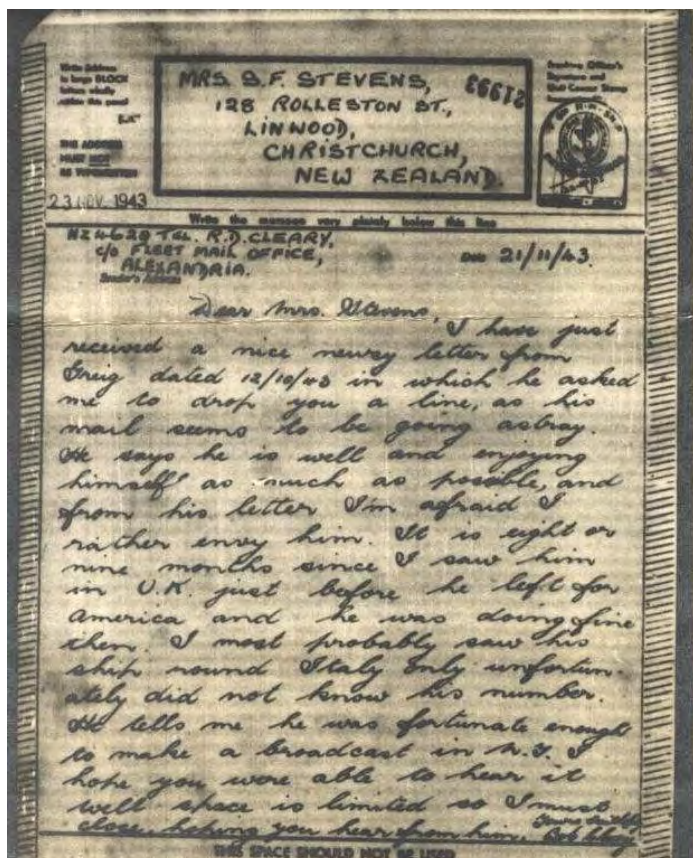 Write Address
in large BLOCK
letters wholly
within this panel
THE ADDRESS
MUST NOT
BE TYPEWRITTEN
MRS. S.F. STEVENS,
128 ROLLESTON ST.,
LINWOOD,
CHRISTCHURCH,
NEW ZEALAND.
21993
Officer's
Signature and
Stamp
23 NOV 1943
Write the message very plainly below this line
NZ4628 TEL. R.D. CLEARY,
c/o FLEET MAIL OFFICE,
ALEXANDRIA.
Sender's Address
Date 21/11/43.
Dear Mrs. Stevens,
I have just
received a nice newsy letter from
Greig dated 12/10/43 in which he asked
me to drop you a line, as his
mail seems to be going astray.
He says he is well and enjoying
himself as much as possible, and
from his letter I'm afraid I
rather envy him. It is eight or
nine months since I saw him
in U.K. just before he left for
America and he was doing fine
then. I most probably saw his
ship round Italy only unfortun-
ately did not know his number.
He tells me he was fortunate enough
to make a broadcast in N.Y. I
hope you were able to hear it
well space is limited so I must
close, hoping you hear from him.
Bob Cleary
THIS SPACE SHOULD NOT BE USED